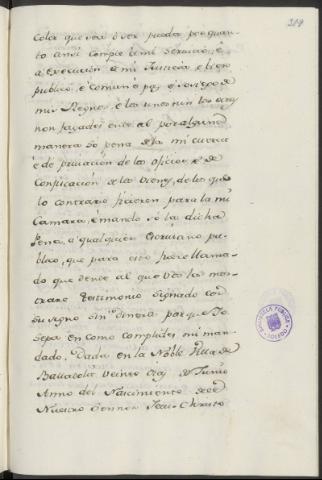 319
Color que sea ó ser pueda por quan
to ansi cumple á mi servicio, é
á execucion de mi Justicia é bien
publico, é comun é paz é sosiego de
mis Regnos, é los unos nin los otros
non fagades ende al por alguna
manera so pena de la mi merced
é de privacion de los oficios é de
Confiscacion de los bienes, de los que
lo contrario ficieren para la mi
Camara, é mando só la dicha
pena, á qualquier Escrivano pu
blico, que para esto fuere llama
do que dende al que vos la mos
trare Testimonio signado con
su signo sin dineros porque Yo
sepa en como complides mi man
dado. Dada en la Noble Villa de
Valladolid veinte dias de Junio
Anno del Nascimiento de
Nuestro Sennor Jesu-Christo
BIBLIOTECA PUBLICA
TOLEDO